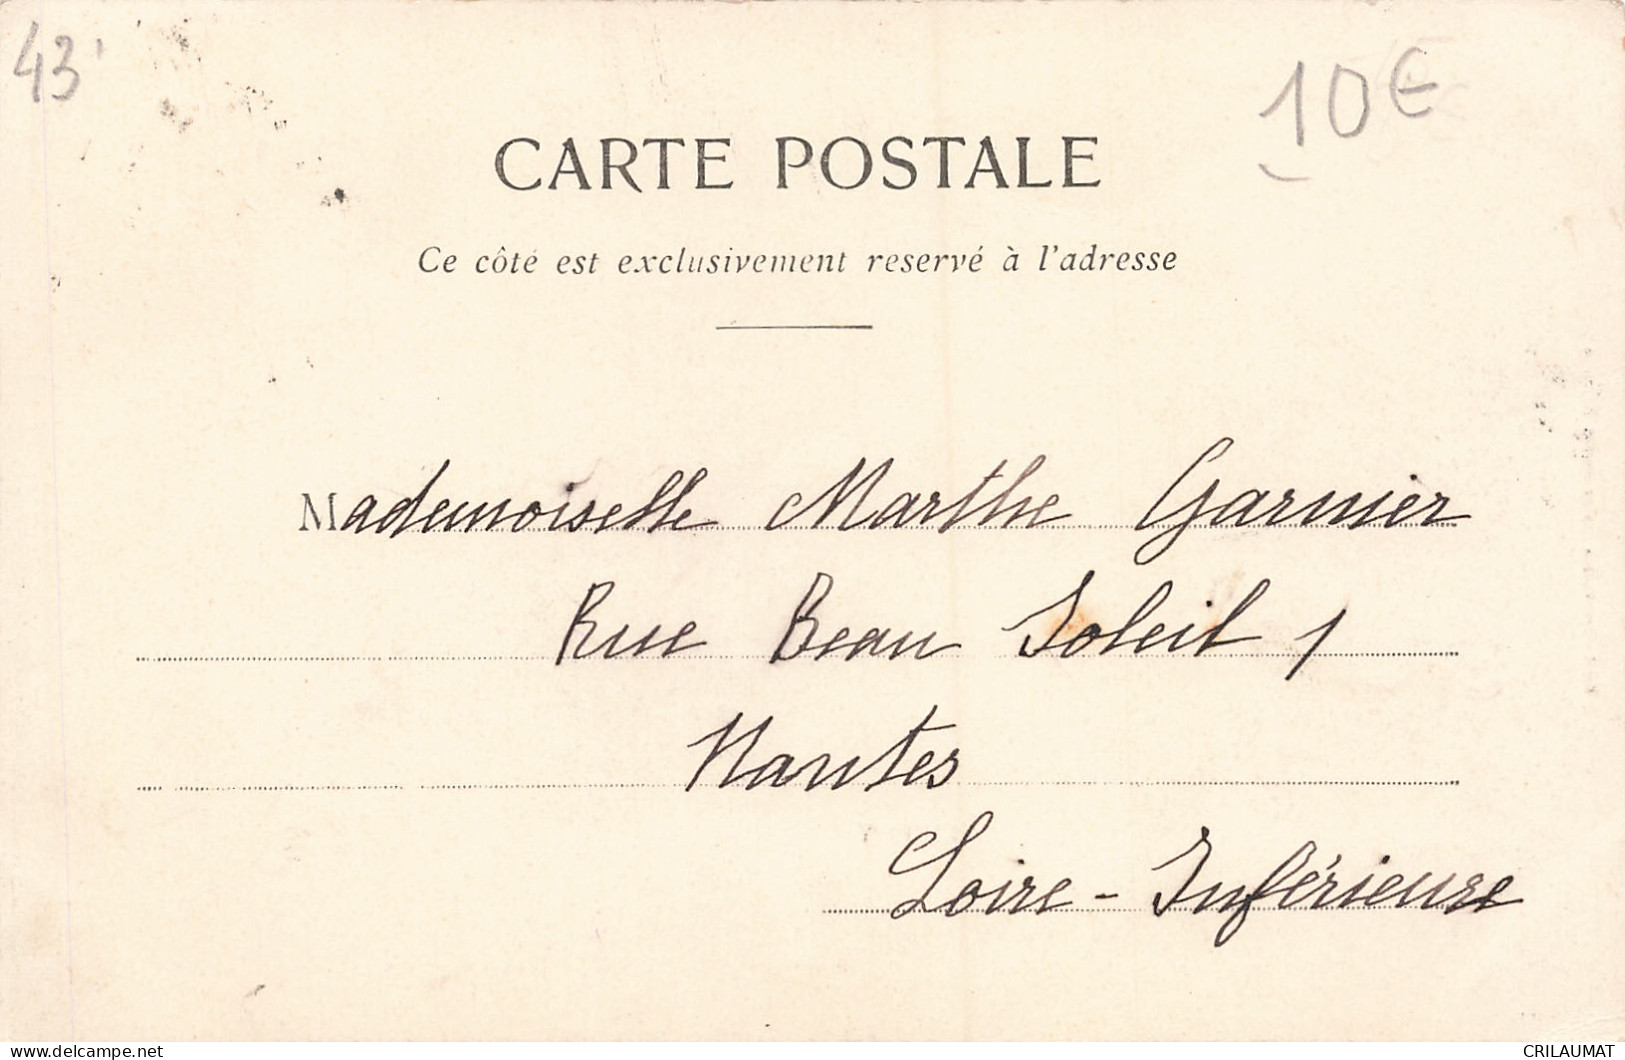 43'
10€
CARTE POSTALE
Ce côté est exclusivement reservé à l'adresse
Mademoiselle Marthe Garnier
Rue Beau Soleil 1
Nantes
Loire-Inférieure
delcampe.net
CRILAUMAT